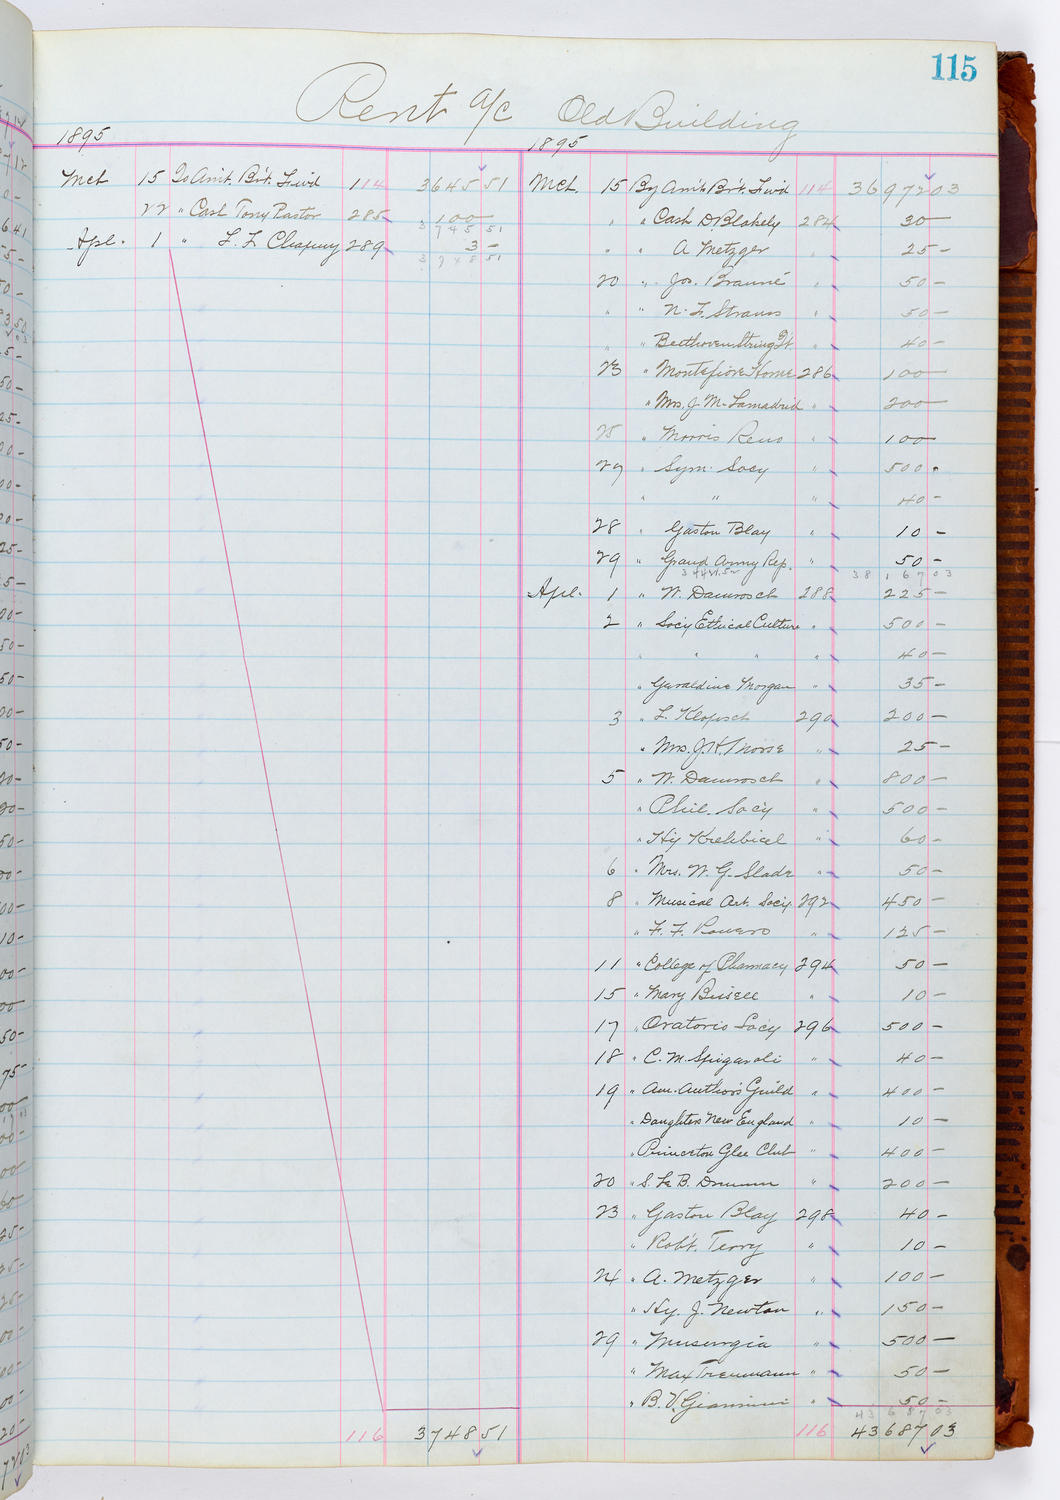 115
Rent a/c Old Building
1895
Mch 15 To Amt. Bro't. Fwd 114 3645 51
22 " Cash Tony Pastor 285 100 —
3745 51
Apl. 1 " F. F. Chapway 289 3 —
3748 51
116 3748 51
1895
Mch. 15 By Am't. Bro't. Fwd 114 36972 03
" " Cash D. Blakely 284 30 —
" " A Metzger " 25 —
20 " Jos. Braune " 50 —
" " N. F. Strauss " 50 —
" " Beethoven String Qt. " 40 —
23 " Montefiore Home 286 100 —
" Mrs. J. M. Lamadrid " 200 —
25 " Morris Reno " 100 —
27 " Sym. Socy " 500 -
" " " 40 —
28 " Gaston Blay " 10 —
29 " Grand Army Rep. " 50 —
38167 03
Apl. 1 " W. Damrosch 288 225 —
2 " Socy Ethical Culture " 500 —
" " " " 40 —
" Geraldine Morgan " 35 —
3 " L. Klopsch 290 200 —
" Mrs. J. H. Morse " 25 —
5 " W. Damrosch " 800 —
" Phil. Soc'y " 500 —
" Hy Krehbiel " 60 —
6 " Mrs. W. G. Slade " 50 —
8 " Musical Art. Socy. 292 450 —
" F. F. Powers " 125 —
11 " College of Pharmacy 294 50 —
15 " Mary Bissell " 10 —
17 " Oratorio Socy 296 500 —
18 " C. M. Spigaroli " 40 —
19 " Am. Author's Guild " 400 —
" Daughters New England " 10 —
" Princeton Glee Club " 400 —
20 " S. Le B. Drumm " 200 —
23 " Gaston Blay 298 40 —
" Rob't. Terry " 10 —
24 " A. Metzger " 100 —
" Hy. J. Newton " 150 —
29 " Musurgia " 500 —
" Max Treumann " 50 —
" B. V. Giannini " 50 —
43687 03
116 43687 03